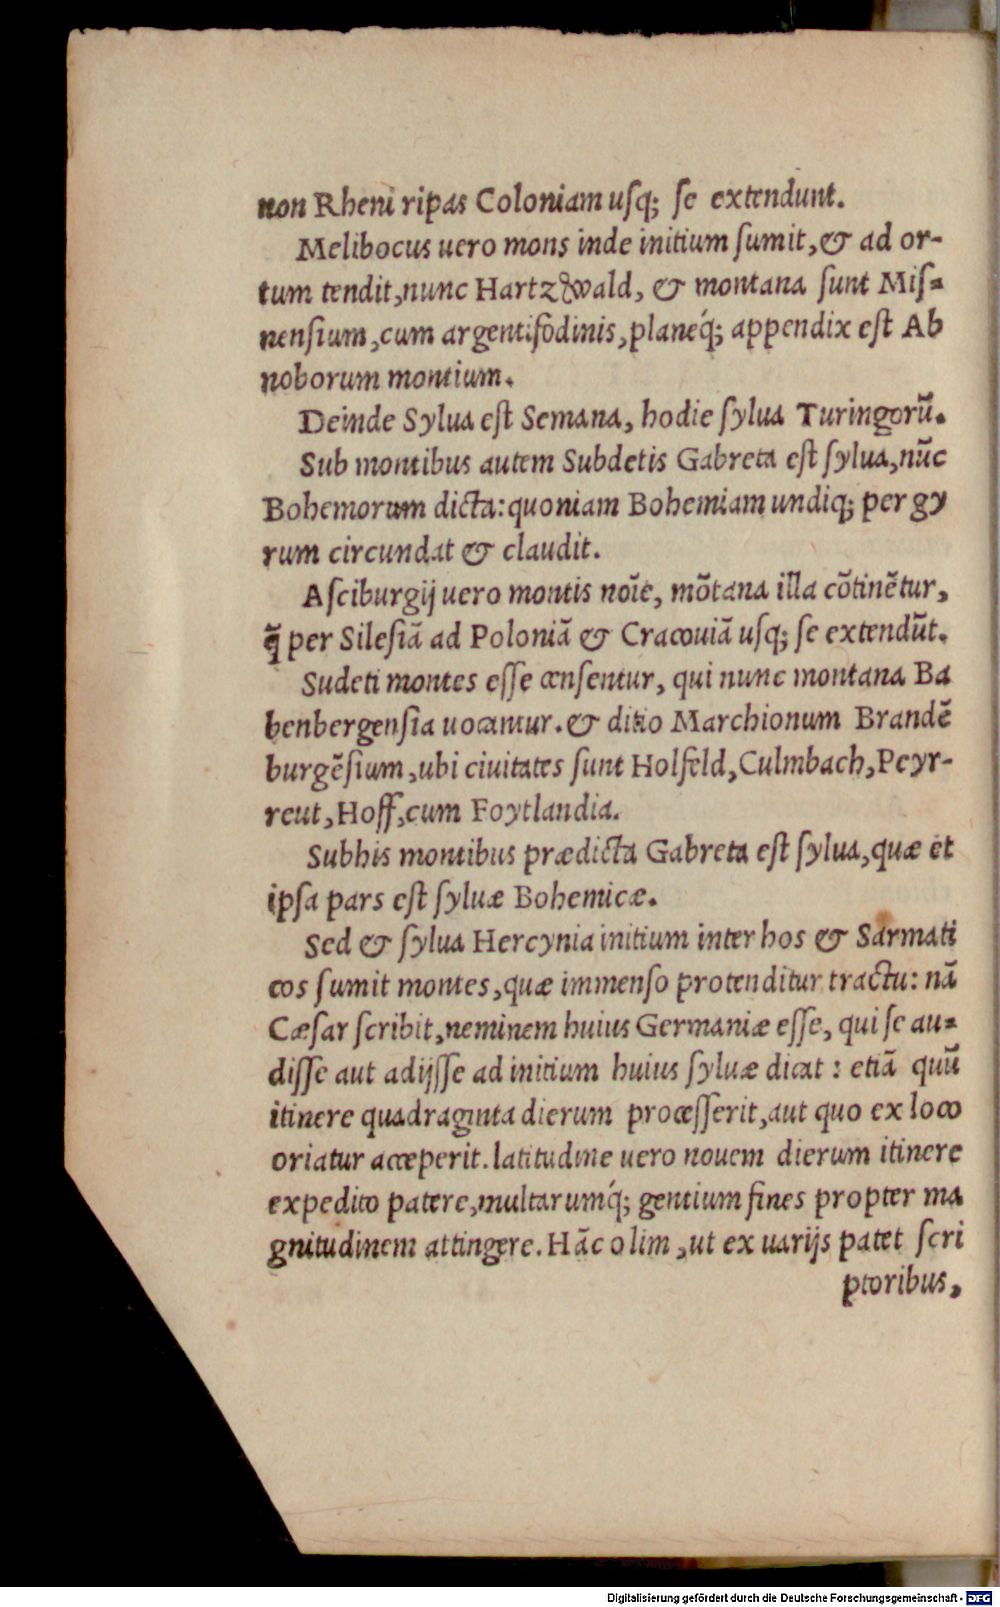 non Rheni ripas Coloniam uſq; ſe extendunt.
Melibocus uero mons inde initium ſumit, & ad or-
tum tendit, nunc Hartzwald, & montana ſunt Miſ=
nenſium, cum argentifodinis, planeq́; appendix eſt Ab
noborum montium.
Deinde Sylua eſt Semana, hodie ſylua Turingorũ.
Sub montibus autem Subdetis Gabreta eſt ſylua, nũc
Bohemorum dicta: quoniam Bohemiam undiq; per gy
rum circundat & claudit.
Aſciburgij uero montis noĩe, mõtana illa cõtinẽtur,
q̃ per Sileſiã ad Poloniã & Cracouiã uſq; ſe extendũt.
Sudeti montes eſſe cenſentur, qui nunc montana Ba
benbergenſia uocantur. & ditio Marchionum Brandẽ
burgẽſium, ubi ciuitates ſunt Holfeld, Culmbach, Peyr-
reut, Hoff, cum Foytlandia.
Subhis montibus prædicta Gabreta eſt ſylua, quæ et
ipſa pars eſt ſyluæ Bohemicæ.
Sed & ſylua Hercynia initium inter hos & Sarmati
cos ſumit montes, quæ immenſo protenditur tractu: nã
Cæſar ſcribit, neminem huius Germaniæ eſſe, qui ſe au=
diſſe aut adijſſe ad initium huius ſyluæ dicat: etiã quũ
itinere quadraginta dierum proceſſerit, aut quo ex loco
oriatur acceperit. latitudine uero nouem dierum itinere
expedito patere, multarumq́; gentium fines propter ma
gnitudinem attingere. Hãc olim, ut ex uarijs patet ſcri
ptoribus,
Digitalisierung gefördert durch die Deutsche Forschungsgemeinschaft - DFG